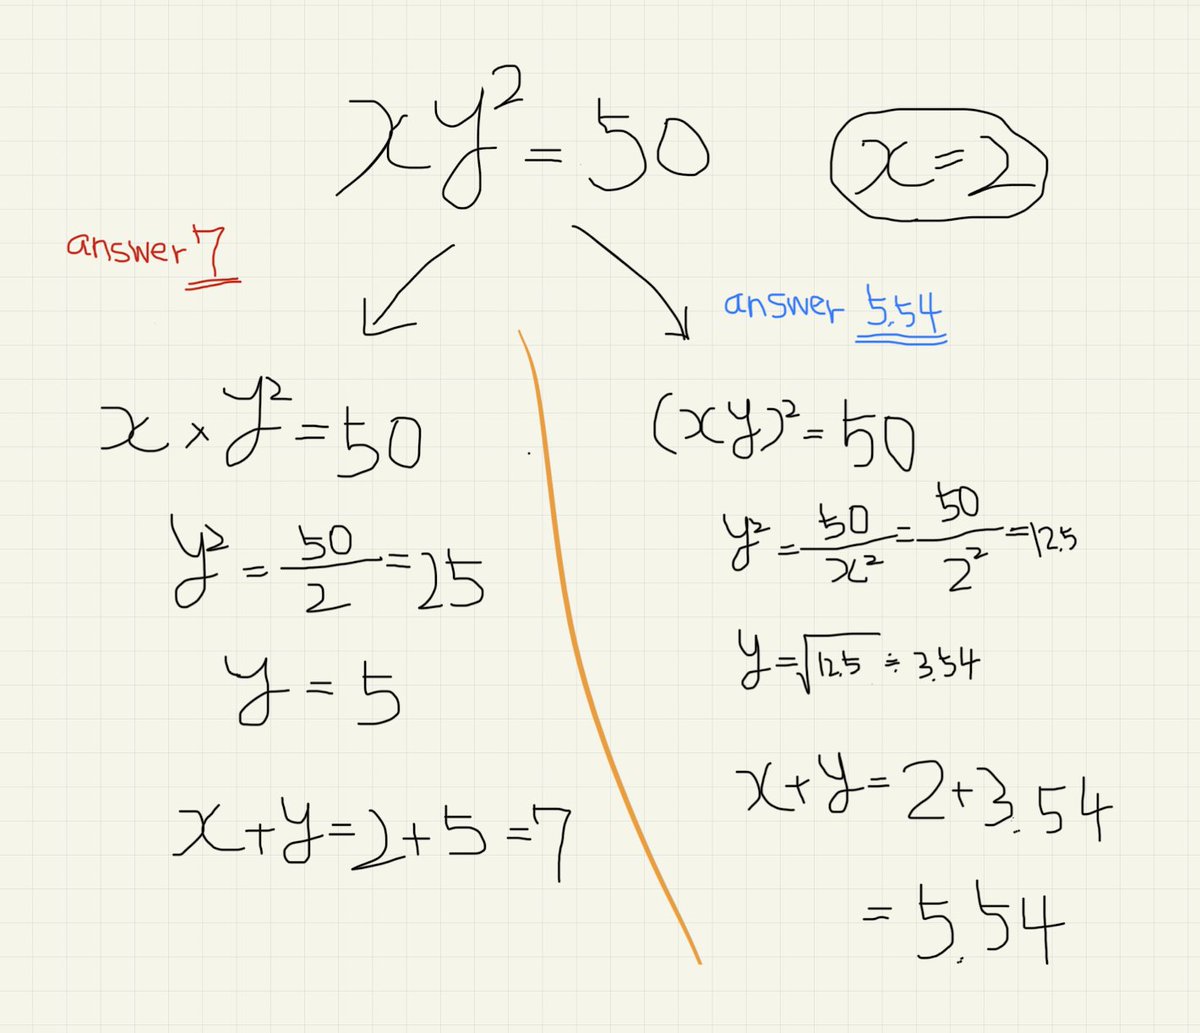 xy² = 50
x = 2
answer 7
answer 5.54
x × y² = 50
y² = 50/2 = 25
y = 5
x + y = 2 + 5 = 7
(xy)² = 50
y² = 50/x² = 50/2² = 12.5
y = √12.5 ≒ 3.54
x + y = 2 + 3.54
= 5.54